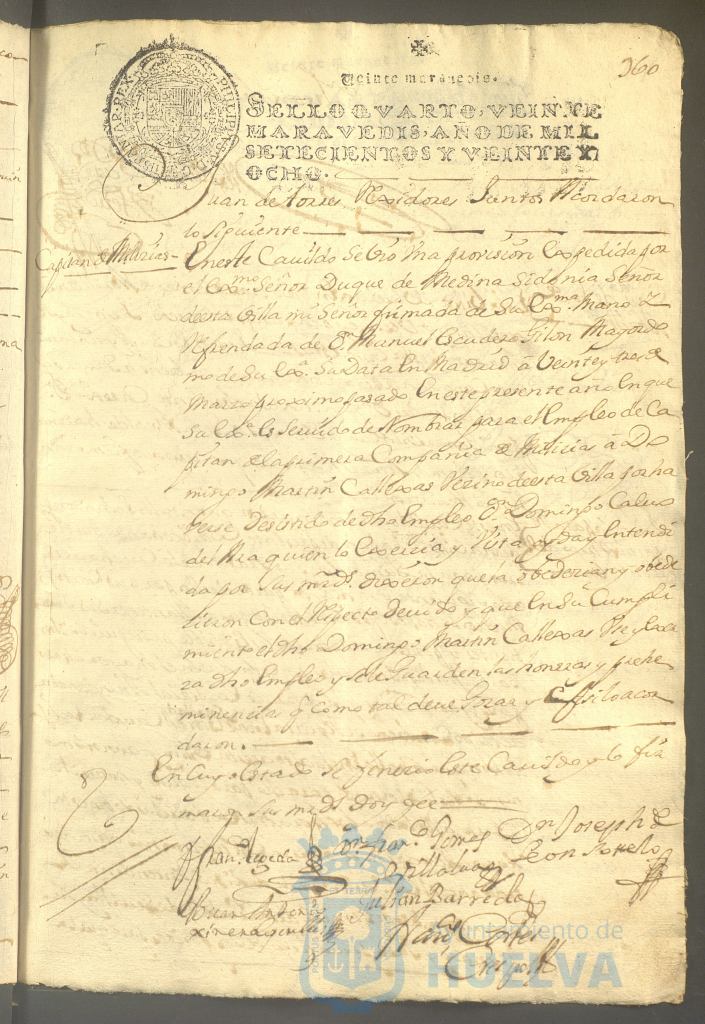 360
Veinte marauedis.
SELLO QVARTO, VEINTE
MARAVEDIS, AÑO DE MIL
SETECIENTOS Y VEINTE Y
OCHO.
Juan de torres Rexidores Juntos Acordaron
lo siguiente
Capitan de Milicias
En este Cavildo se bio Vna provision Expedida por
el Exmo. Señor Duque de Medina Sidonia Señor
de esta Villa mi Señor firmada de Su Exma. Mano y
Refrendada de Dn. Manuel Escudero Gilon Mayordo
mo de Su Exa. Su Data En Madrid à Veinte y tres de
Marzo proximo pasado En este presente año En que
Su Exa. Es Seruido de Nombrar para el Empleo de Ca
pitan de la primera Compañia de Milicias à Do
mingo Martin Callexas Vezino de esta Villa por ha
verse Desistido de dho Empleo Dn. Dominpo Caluo
del quien lo Exercia y Vista oyda y Entendi
da por Sus mrds. dixeron que la obedezian y obede
zieron Con el Respecto Deuido y que En Su Cumpli
miento el dho Domingo Martin Callexas Vse y Exer
za dho Empleo y se le Guarden las honrras y prehe
minencias q como tal deue Gozar y assi lo acor
daron.
En Cuyo Estado se fenezio Este Cavildo y lo fir
maron Sus mrds doy fee
Fran. Zepeda
Dn. Joseph de
Leon Sotelo
Gomes
Villalua
Juan Antonio
Julian Barreda
Cortes
Crespo
Ayuntamiento de
HUELVA